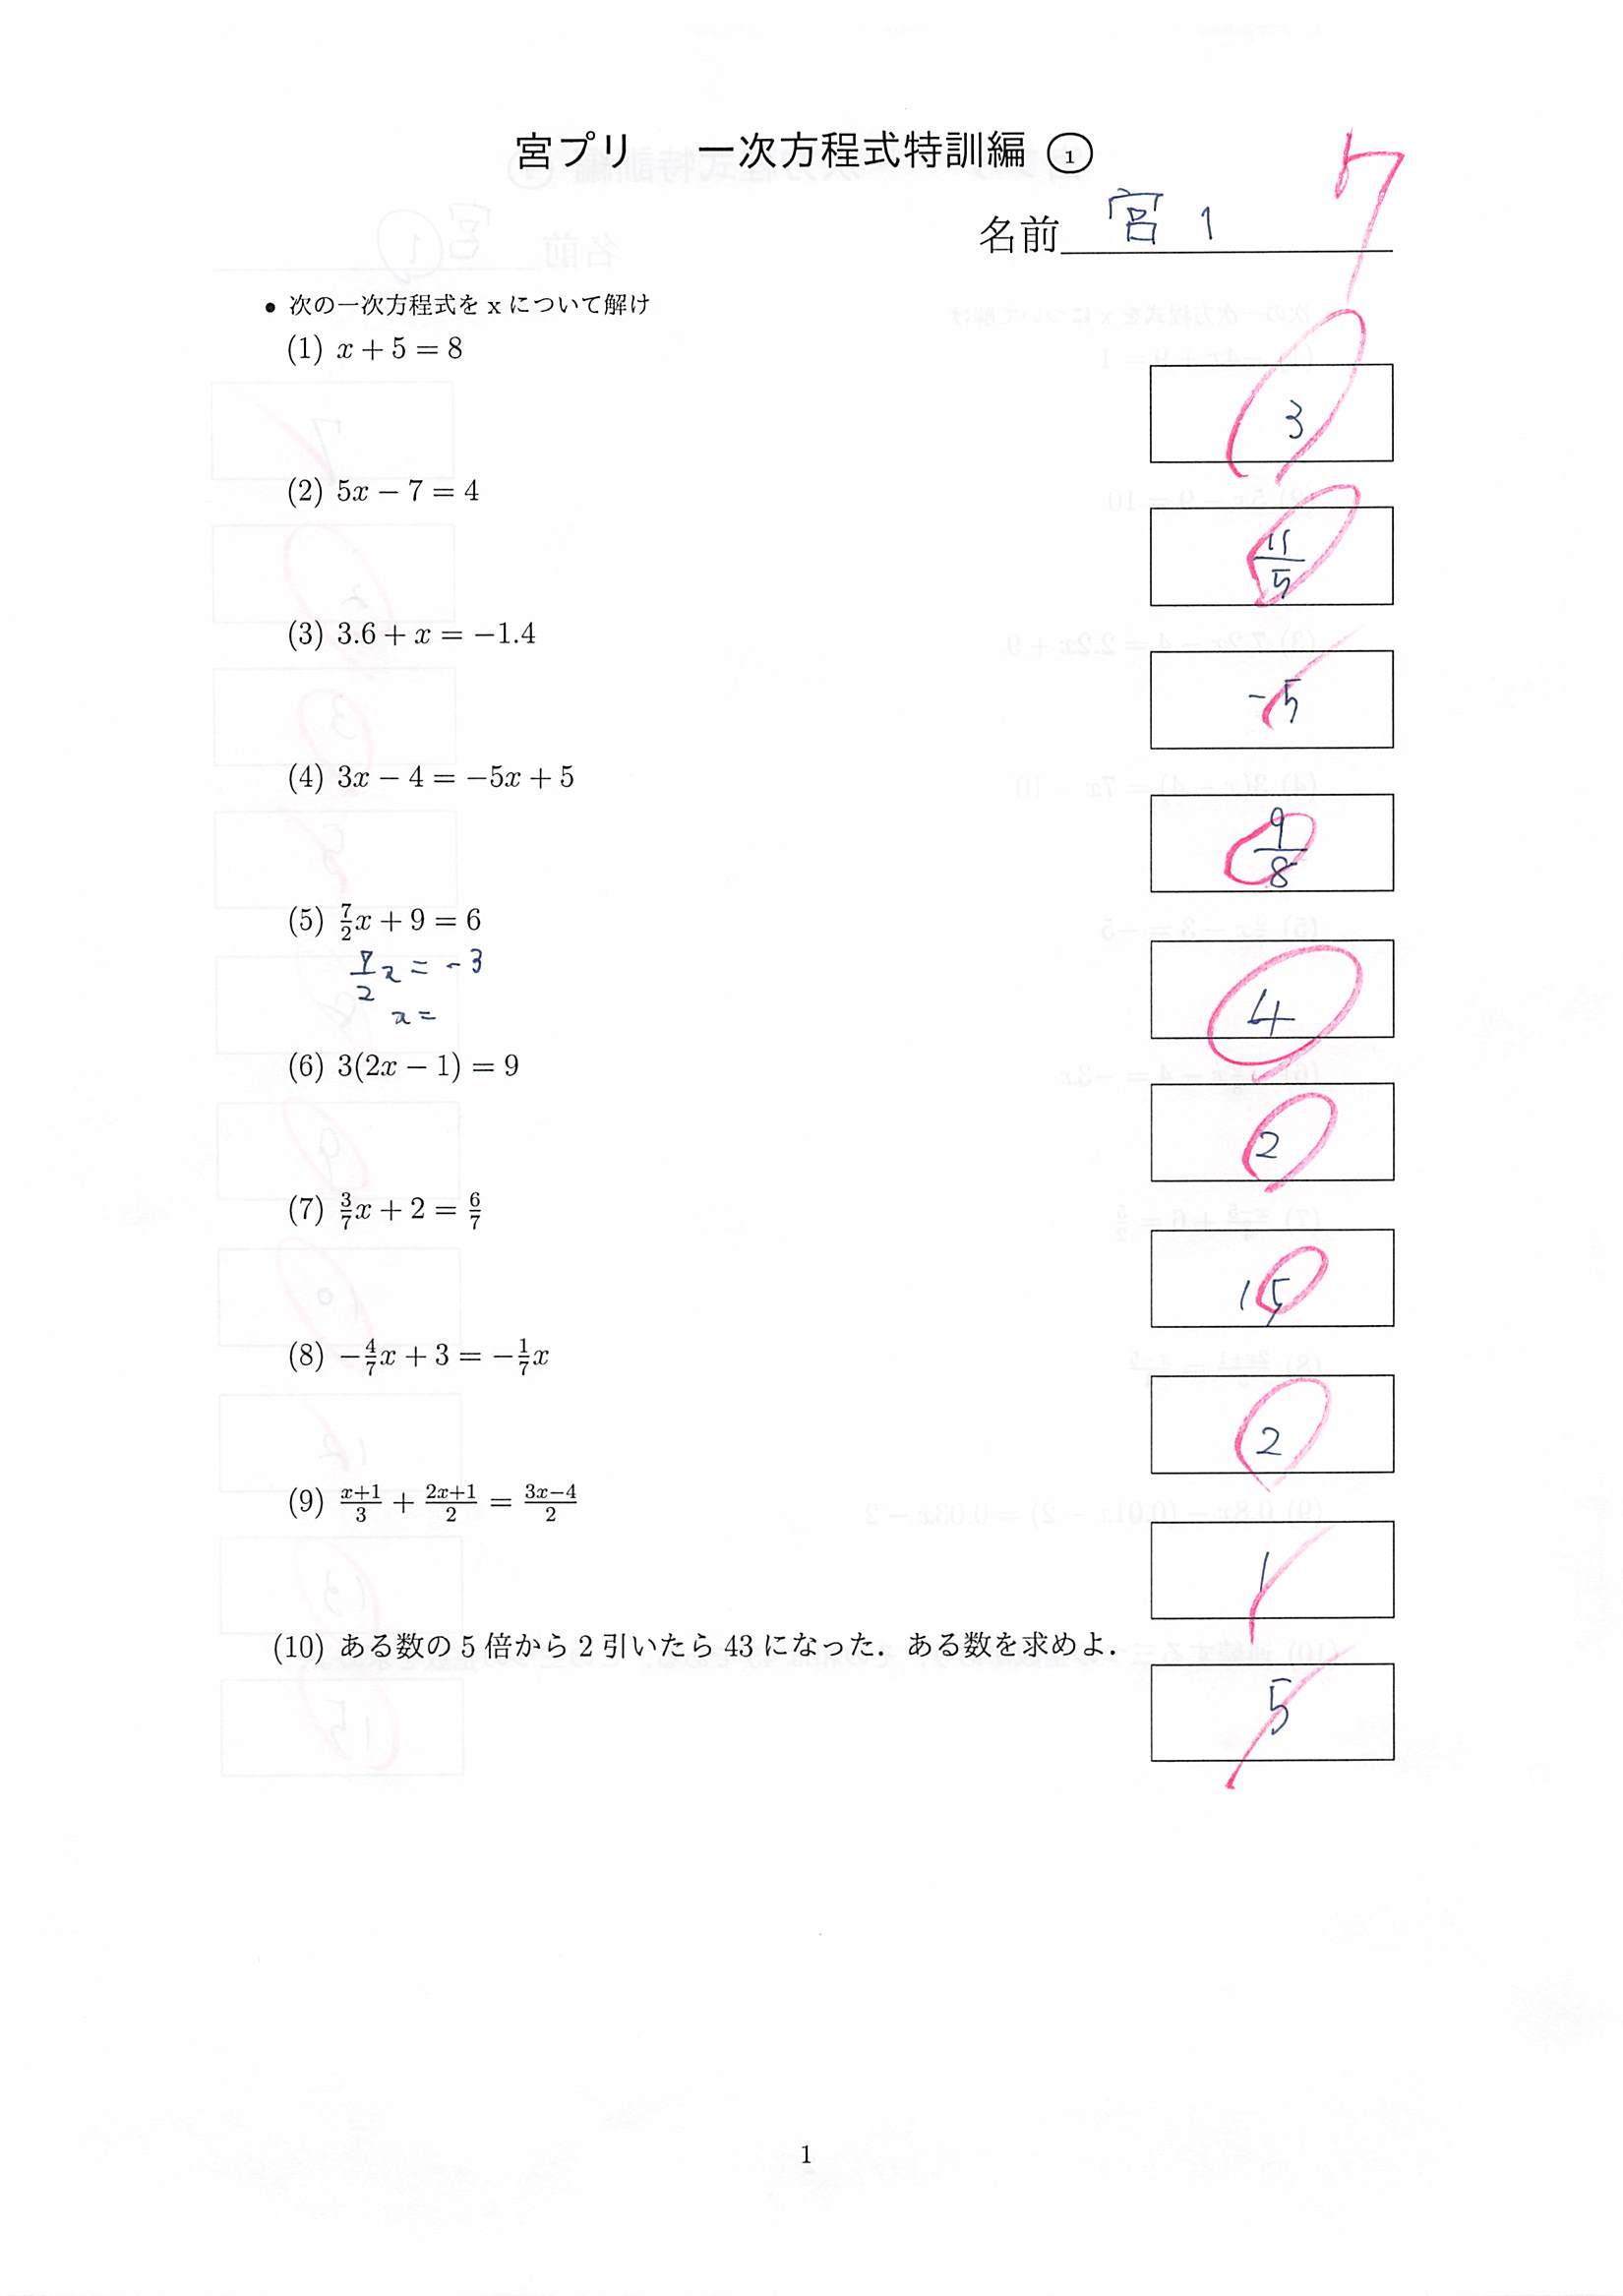 宮プリ 一次方程式特訓編 ①
7
名前 宮 1
• 次の一次方程式を x について解け
(1) x + 5 = 8
3
(2) 5x − 7 = 4
11/5
(3) 3.6 + x = −1.4
-5
(4) 3x − 4 = −5x + 5
9/8
(5) 7/2 x + 9 = 6
7/2 x = -3
x =
4
(6) 3(2x − 1) = 9
2
(7) 3/7 x + 2 = 6/7
15
(8) −4/7 x + 3 = −1/7 x
2
(9) (x+1)/3 + (2x+1)/2 = (3x−4)/2
1
(10) ある数の 5 倍から 2 引いたら 43 になった．ある数を求めよ．
5
1